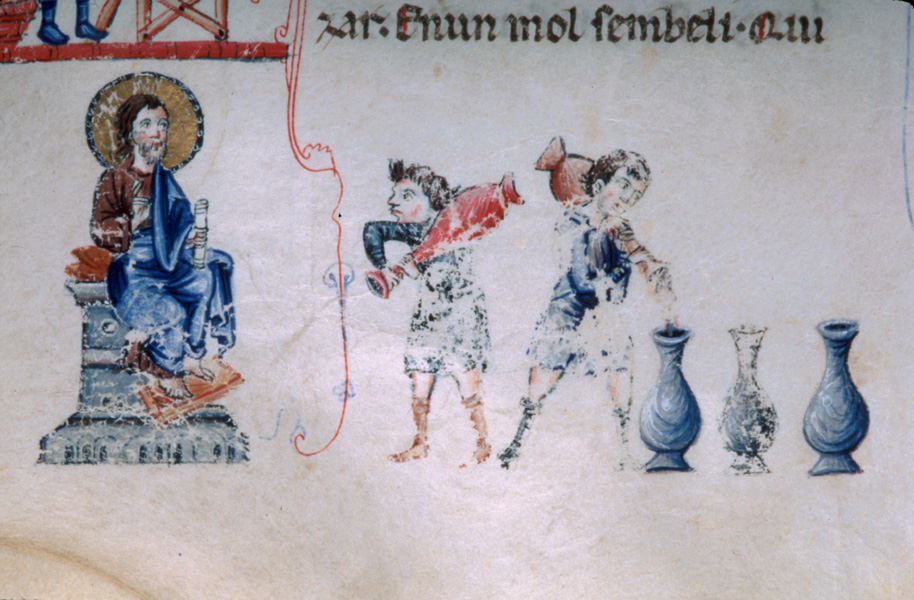 zar. Enun mol sembeli. Qui